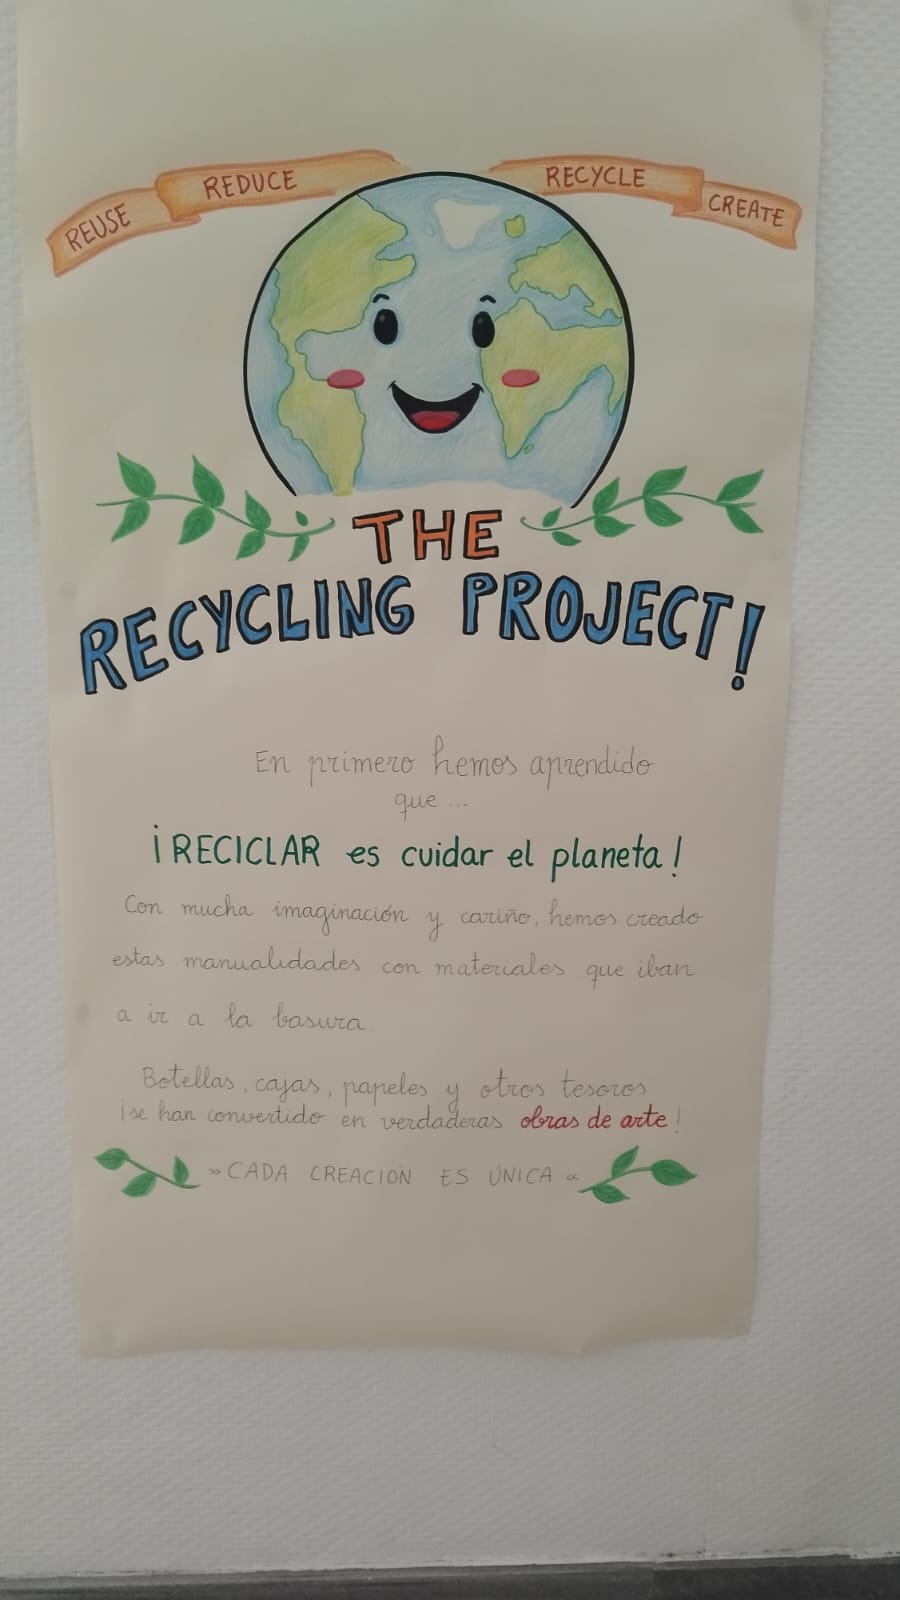 REUSE REDUCE RECYCLE CREATE
THE
RECYCLING PROJECT!
En primero hemos aprendido
que ...
¡RECICLAR es cuidar el planeta!
Con mucha imaginación y cariño, hemos creado
estas manualidades con materiales que iban
a ir a la basura.
Botellas, cajas, papeles y otros tesoros
¡se han convertido en verdaderas obras de arte!
»CADA CREACIÓN ES ÚNICA«